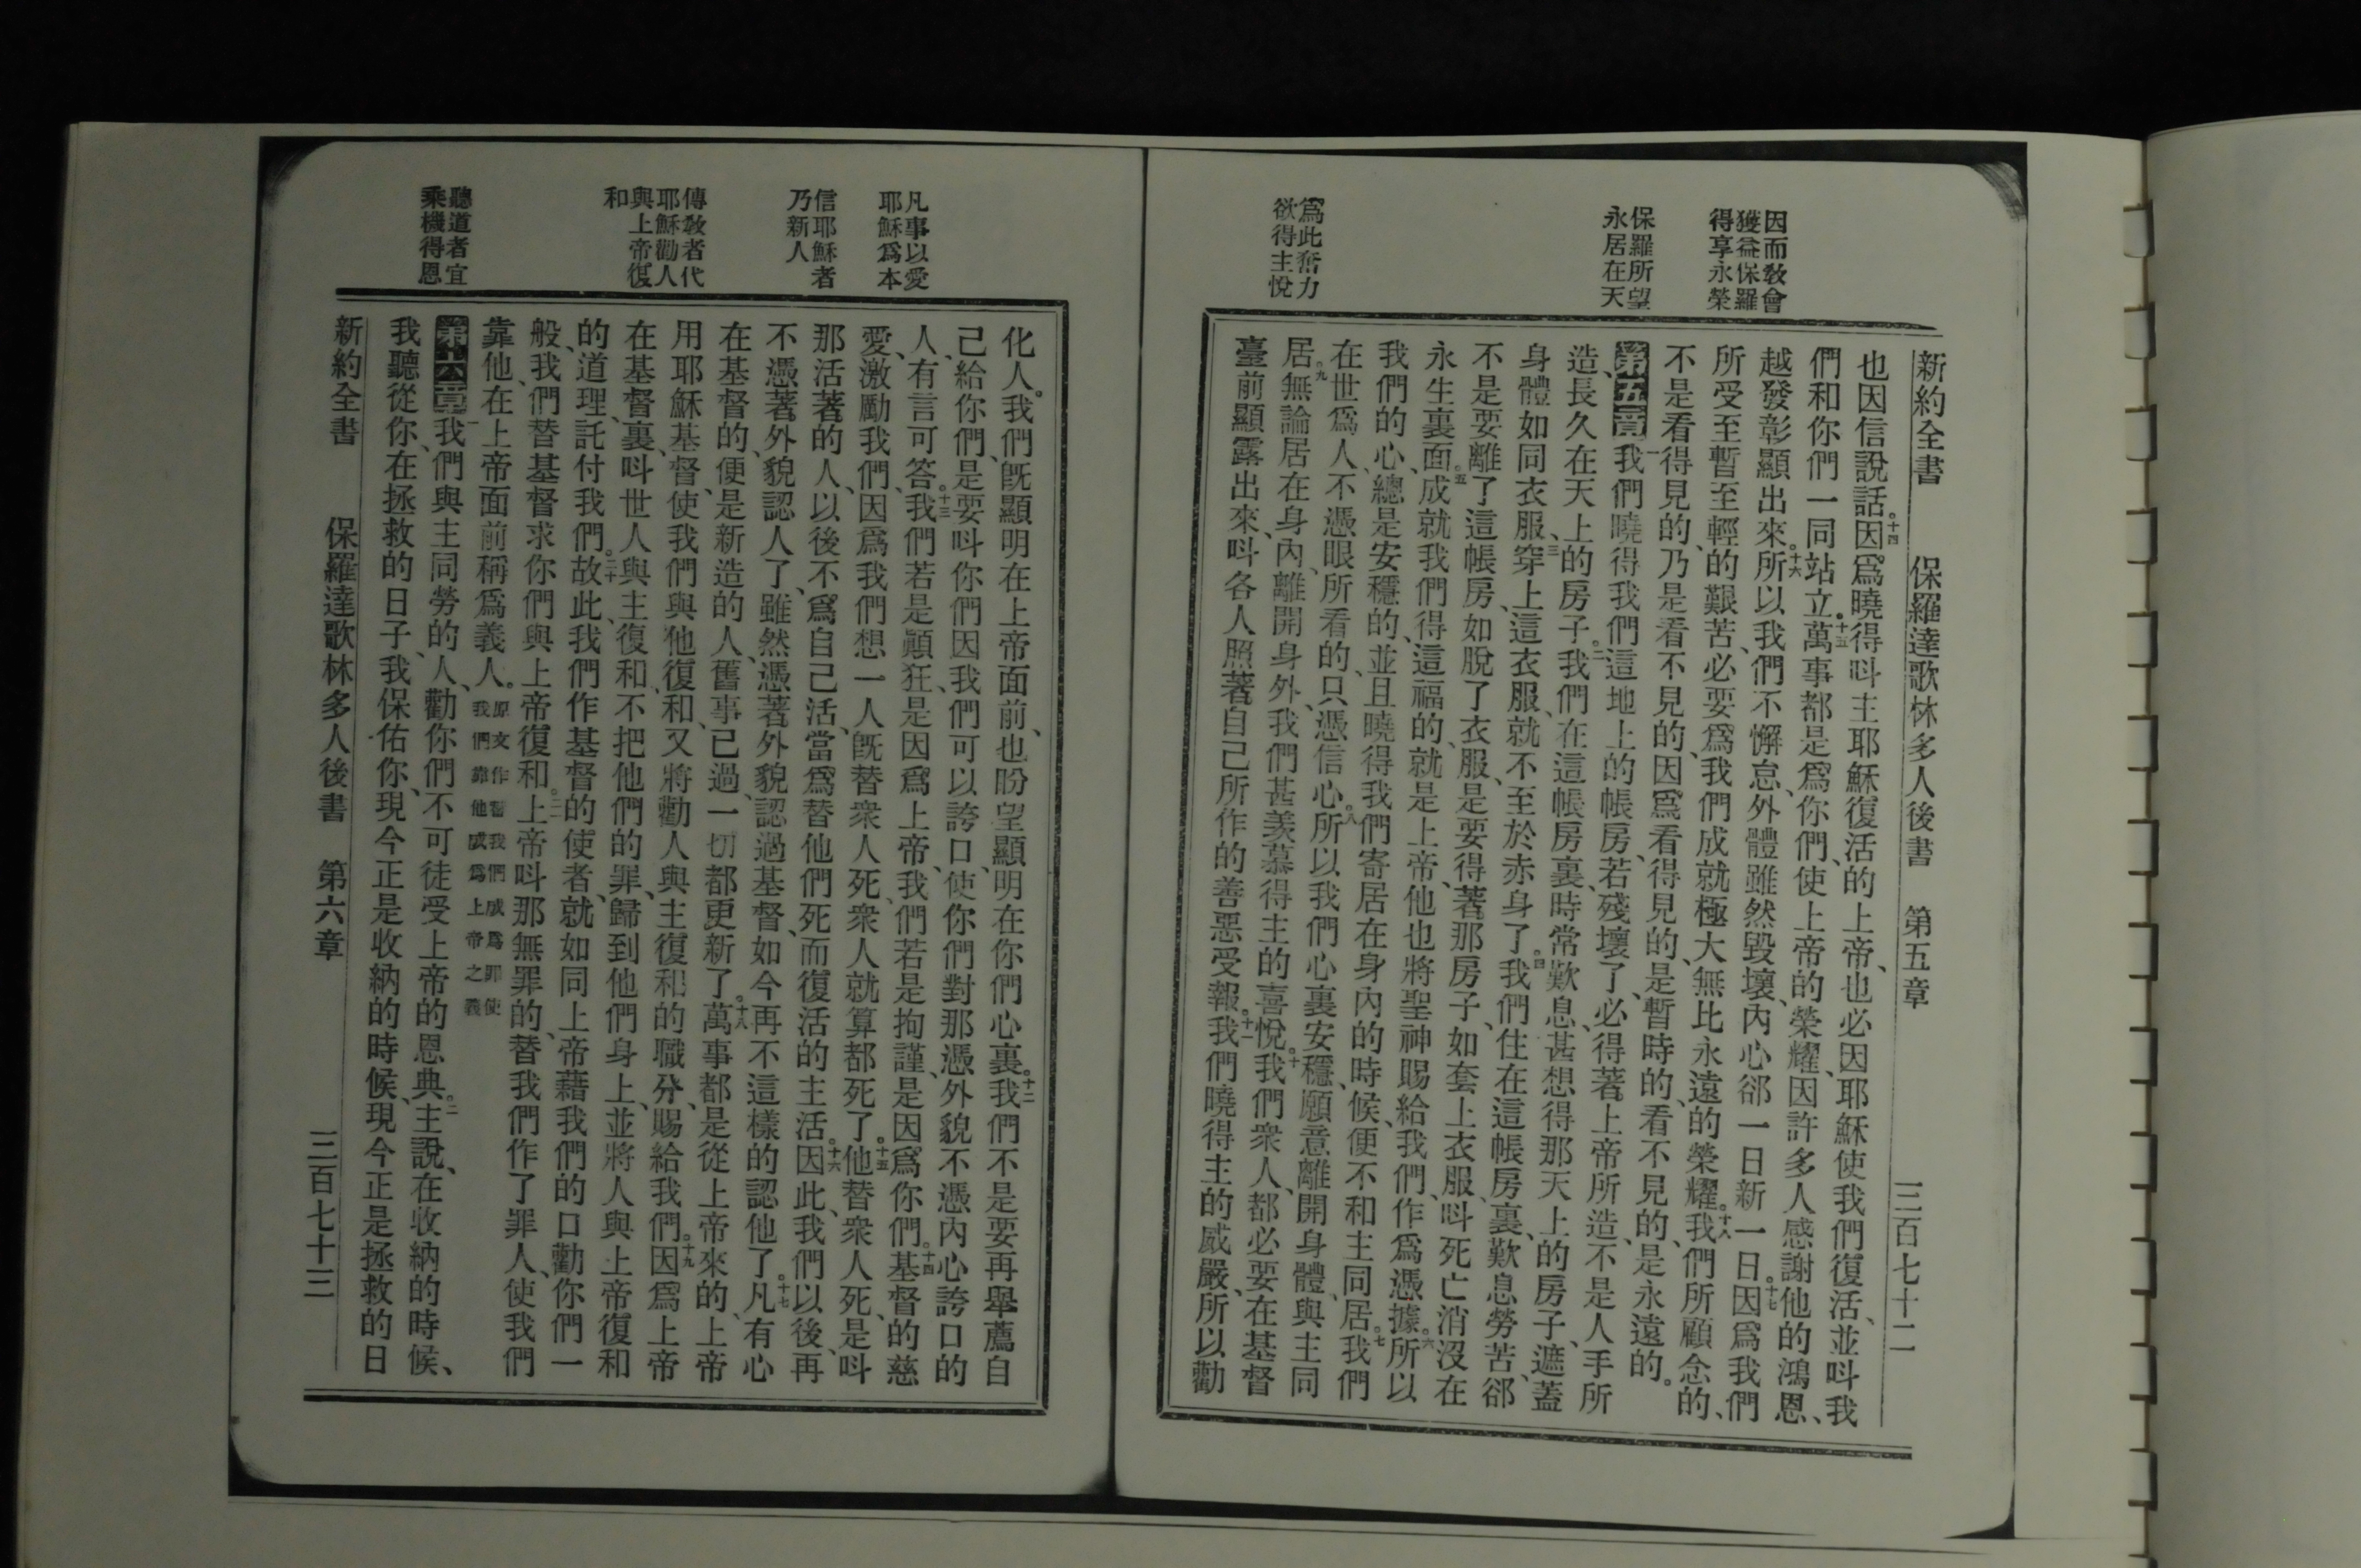 新約全書 保羅達歌林多人後書 第五章 三百七十二
因而敎會
獲益保羅
得享永榮
保羅所望
永居在天
爲此奮力
欲得主悅
也因信說話。十四因爲曉得呌主耶穌復活的上帝、也必因耶穌使我們復活、並呌我
們和你們一同站立。十五萬事都是爲你們、使上帝的榮耀、因許多人感謝他的鴻恩、
越發彰顯出來。十六所以我們不懈怠、外體雖然毀壞、內心郤一日新一日。十七因爲我們
所受至暫至輕的艱苦、必要爲我們成就極大無比永遠的榮耀。十八我們所顧念的、
不是看得見的、乃是看不見的、因爲看得見的、是暫時的、看不見的、是永遠的。
第五章一我們曉得我們這地上的帳房、若殘壞了、必得著上帝所造、不是人手所
造、長久在天上的房子。二我們在這帳房裏、時常歎息、甚想得那天上的房子、遮蓋
身體如同衣服、三穿上這衣服、就不至於赤身了。四我們住在這帳房裏、歎息勞苦、郤
不是要離了這帳房、如脫了衣服、是要得著那房子、如套上衣服、呌死亡消沒在
永生裏面。五成就我們得這福的、就是上帝、他也將聖神賜給我們、作爲憑據。六所以
我們的心、總是安穩的、並且曉得我們寄居在身內的時候、便不和主同居。七我們
在世爲人、不憑眼所看的、只憑信心。八所以我們心裏安穩、願意離開身體、與主同
居。九無論居在身內、離開身外、我們甚羨慕得主的喜悅。十我們衆人、都必要在基督
臺前顯露出來、呌各人照著自己所作的善惡受報。十一我們曉得主的威嚴、所以勸
凡事以愛
耶穌爲本
信耶穌者
乃新人
傳敎者代
耶穌勸人
與上帝復
和
聽道者宜
乘機得恩
化人。我們旣顯明在上帝面前、也盼望顯明在你們心裏。十二我們不是要再舉薦自
己給你們、是要呌你們因我們可以誇口、使你們對那憑外貌不憑內心誇口的
人、有言可答。十三我們若是顚狂、是因爲上帝、我們若是拘謹、是因爲你們。十四基督的慈
愛、激勵我們、因爲我們想一人旣替衆人死、衆人就算都死了。十五他替衆人死、是呌
那活著的人、以後不爲自己活、當爲替他們死而復活的主活。十六因此、我們以後、再
不憑著外貌認人了、雖然憑著外貌、認過基督、如今再不這樣的認他了。十七凡有心
在基督的、便是新造的人、舊事已過、一切都更新了。十八萬事都是從上帝來的、上帝
用耶穌基督、使我們與他復和、又將勸人與主復和的職分、賜給我們。十九因爲上帝
在基督裏、呌世人與主復和、不把他們的罪、歸到他們身上、並將人與上帝復和
的道理、託付我們。二十故此、我們作基督的使者、就如同上帝藉我們的口勸你們一
般、我們替基督求你們與上帝復和。二一上帝呌那無罪的、替我們作了罪人、使我們
靠他在上帝面前稱爲義人。原文作替我們成爲罪使我們靠他成爲上帝之義
第六章一我們與主同勞的人、勸你們不可徒受上帝的恩典。二主說、在收納的時候、
我聽從你、在拯救的日子、我保佑你、現今正是收納的時候、現今正是拯救的日
新約全書 保羅達歌林多人後書 第六章 三百七十三